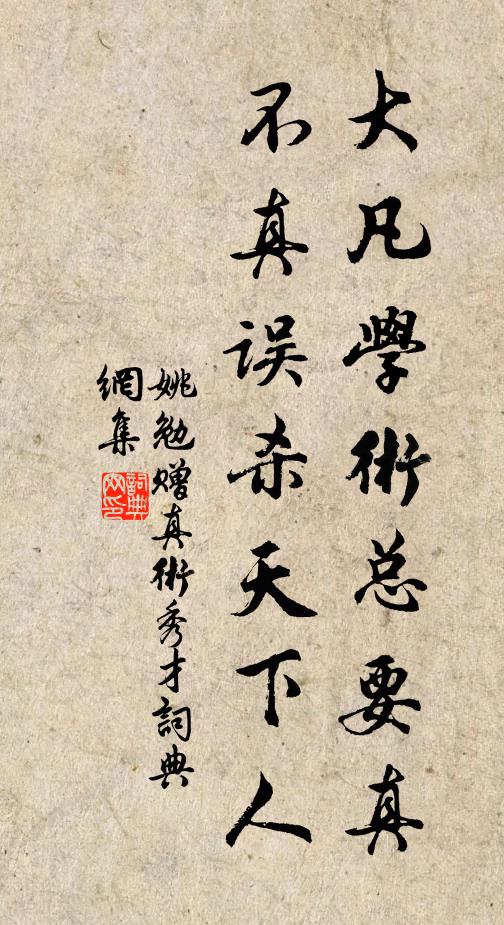 大凡學術总要真
不真误杀天下人
姚勉赠真術秀才詞典
網集
詞典
网印